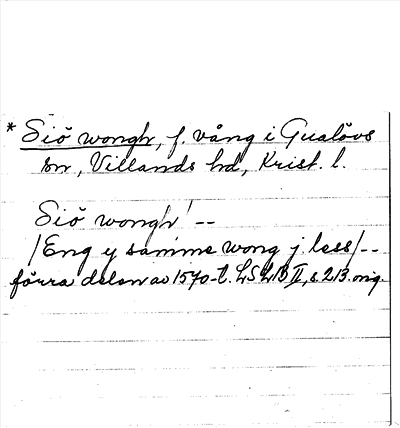 * Siö wongh, f. vång i Gualövs
sn, Villands hd, Krist. l.
Siö wongh --
/Eng y samme wong j. less/--
förra delen av 1570-t. LSLJB II, s. 213. orig.